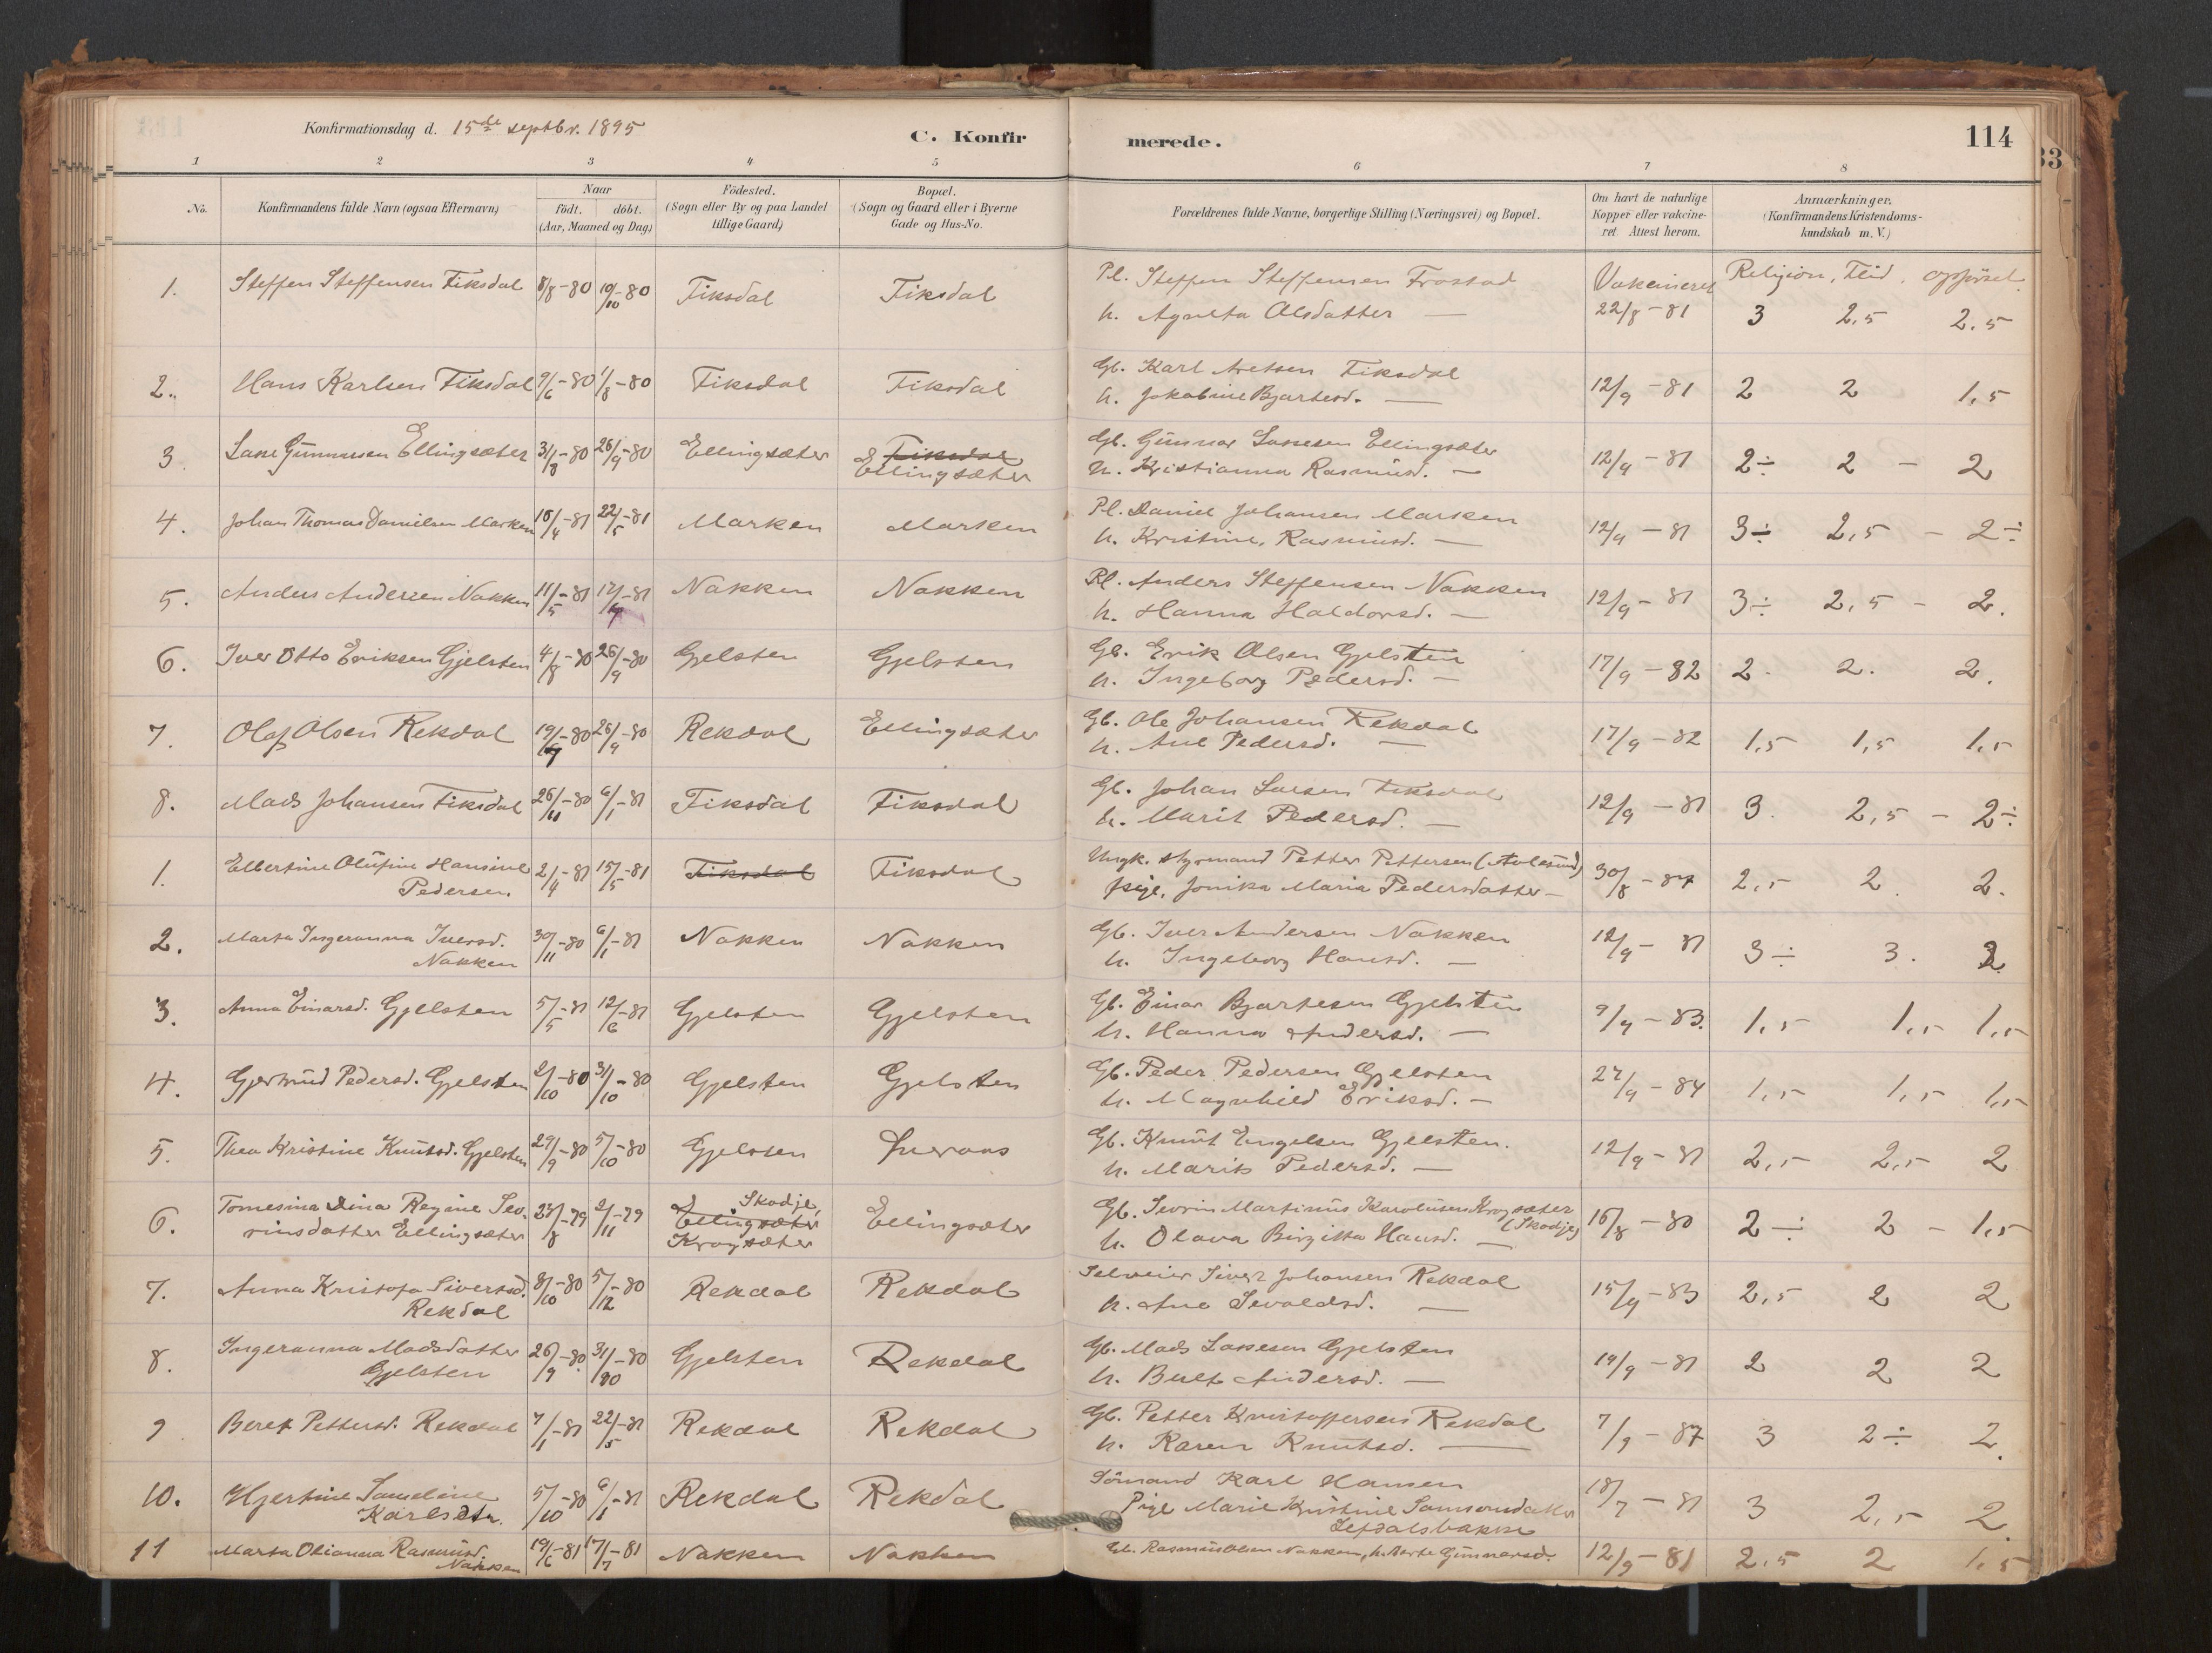 Konfirmationsdag d. 15de septbr. 1895 C. Konfirmerede. 114
33
1 2 3 4 5 6 7 8
No. Konfirmandens fulde Navn (ogsaa Efternavn) Naar födt. döbt. (Aar, Maaned og Dag) Födested. (Sogn eller By og paa Landet tillige Gaard) Bopæl. (Sogn og Gaard eller i Byerne Gade og Hus-No. Forældrenes fulde Navne, borgerlige Stilling (Næringsvei) og Bopæl. Om havt de naturlige Kopper eller vakcineret Attest herom. Anmærkninger. (Konfirmandens Kristendomskundskab m. V.)
Religion, Flid, opførsel
1. Steffen Steffensen Fiksdal 8/8-80 10/10-80 Fiksdal Fiksdal Pl. Steffen Steffensen Frostad Vakcineret
h. Agneta Olsdatter — 22/8-81 3 2,5 2,5
2. Hans Karlsen Fiksdal 9/6-80 1/8-80 Fiksdal Fiksdal Gb. Karl Aretsen Fiksdal
h. Jakobine Bjartesd. — 12/9-81 2 2 1,5
3 Lasse Gunnarsen Ellingsæter 31/8-80 26/9-80 Ellingsæter Fiksdal Ellingsæter Gb. Gunnar Lassesen Ellingsæter
h. Kristianna Rasmusd. — 12/9-81 2÷ 2 - 2
4. Johan Thomas Danielsen Marken 16/4-81 22/5-81 Marken Marken Pl. Daniel Johansen Marken
h. Kristine Rasmusd. — 12/9-81 3÷ 2,5 - 2÷
5. Anders Andersen Nakken 11/5-81 17/7-81 Nakken Nakken Pl. Anders Steffensen Nakken
h. Hanna Haldorsd. — 12/9-81 3÷ 2,5 - 2.
6. Iver Otto Eriksen Gjelsten 4/8-80 26/9-80 Gjelsten Gjelsten Gb. Erik Olsen Gjelsten
h. Ingeborg Pedersd. — 17/9-82 2. 2. 2.
7. Olaf Olsen Rekdal 19/7-80 26/9-80 Rekdal Ellingsæter Gb. Ole Johansen Rekdal
h. Ane Pedersd. — 17/9-82 1,5 1,5 1,5
8. Mads Johansen Fiksdal 26/11-80 6/1-81 Fiksdal Fiksdal Gb. Johan Larsen Fiksdal
h. Marit Pedersd. — 12/9-81 3. 2,5 - 2÷
1. Elbertine Olufine Hansine Pedersen. 2/4-81 15/5-81 Fiksdal Fiksdal Ungk. styrmand Petter Pettersen (Aalesund)
pige, Jonika Maria Pedersdatter — 30/8-87 2,5 2 2.
2. Marta Ingeranna Iversd. Nakken 30/11-80 6/1-81 Nakken Nakken Gb. Iver Andersen Nakken
h. Ingeborg Hansd. — 12/9-81 3÷ 3. 2
3. Anna Einarsd. Gjelsten 5/5-81 12/6-81 Gjelsten Gjelsten Gb. Einar Bjartesen Gjelsten
h. Hanna Andersd. — 9/9-83. 1,5 1,5 1,5
4. Gjertrud Pedersd. Gjelsten 2/10-80 31/10-80 Gjelsten Gjelsten Gb. Peder Pedersen Gjelsten
h. Magnhild Eriksd. — 27/9-84 1,5 1,5 1,5
5. Thea Kristine Knutsd. Gjelsten 29/9-80 5/10-80 Gjelsten Gb. Knut Engelsen Gjelsten.
h. Marit Pedersd. — 12/9-81 2,5 2,5 2
6. Tomesina Dina Regine Sevrinsdatter Ellingsæter 27/8-79 2/11-79 Skodje, Ellingsæter Krogsæter Ellingsæter Gb. Sevrin Martinus Karolusen Krogsæter (Skodje)
h. Olava Birgitta Hansd. — 16/8-80 2÷ 2 - 1,5
7. Anna Kristofa Siversd. Rekdal 8/10-80 5/12-80 Rekdal Rekdal Selveier Siver Johansen Rekdal
h. Ane Sevaldsd. — 15/9-83 2,5 2 2
8. Ingeranna Madsdatter Gjelsten 26/9-80 31/10-80 Gjelsten Rekdal Gb. Mads Lassesen Gjelsten
h. Beret Andersd. — 19/9-81 2 2 2
9 Beret Pettersd. Rekdal 7/1-81 22/5-81 Rekdal Rekdal Gb. Petter Kristoffersen Rekdal
h. Karen Knutsd. — 7/9-87 3 2÷ 2.
10. Hjertine Lameline Karlsdtr. 5/10-80 6/1-81 Rekdal Rekdal Sömand Karl Hansen
Pige Marie Kristine Samsonsdatter 18/7-81 3 2,5 2
11 Marta Olianna Rasmusd. Nakken 19/6-81 17/7-81 Nakken Nakken Gb. Rasmus Olsen Nakken, h. Marte Gunnarsd. 12/9-81 2,5 2 1,5